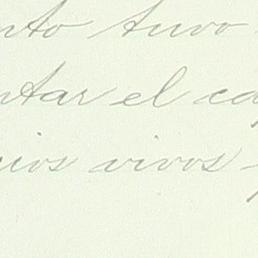 nto tuvo
ntar el ca
cios vivos